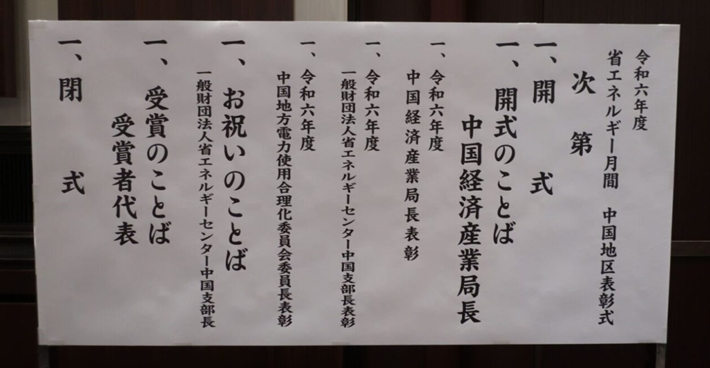 令和六年度
省エネルギー月間　中国地区表彰式
次　第
一、開　　式
一、開式のことば
中国経済産業局長
一、令和六年度
中国経済産業局長表彰
一、令和六年度
一般財団法人省エネルギーセンター中国支部長表彰
一、令和六年度
中国地方電力使用合理化委員会委員長表彰
一、お祝いのことば
一般財団法人省エネルギーセンター中国支部長
一、受賞のことば
受賞者代表
一、閉　　式